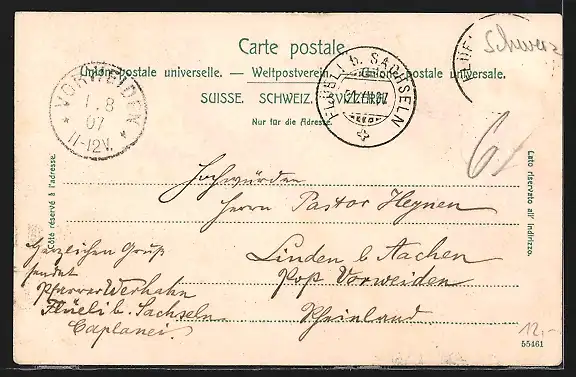 Carte postale.
Union postale universelle. — Weltpostverein. — Unione postale universale.
SUISSE. SCHWEIZ. SVIZZERA.
Nur für die Adresse.
VORWEIDEN
1.8
07
11-12V.
FLÜELI b. SACHSELN
FLÜELI
Schweiz
6
Côté réservé à l'adresse.
Lato riservato all' indirizzo.
Hochwürden
Herrn Pastor Heynen
Linden b. Aachen
Post Vorweiden
Rheinland.
Herzlichen Gruß
sendet
Pfarrer Werhahn
Flüeli b. Sachseln
Caplanei.
12.-
55461